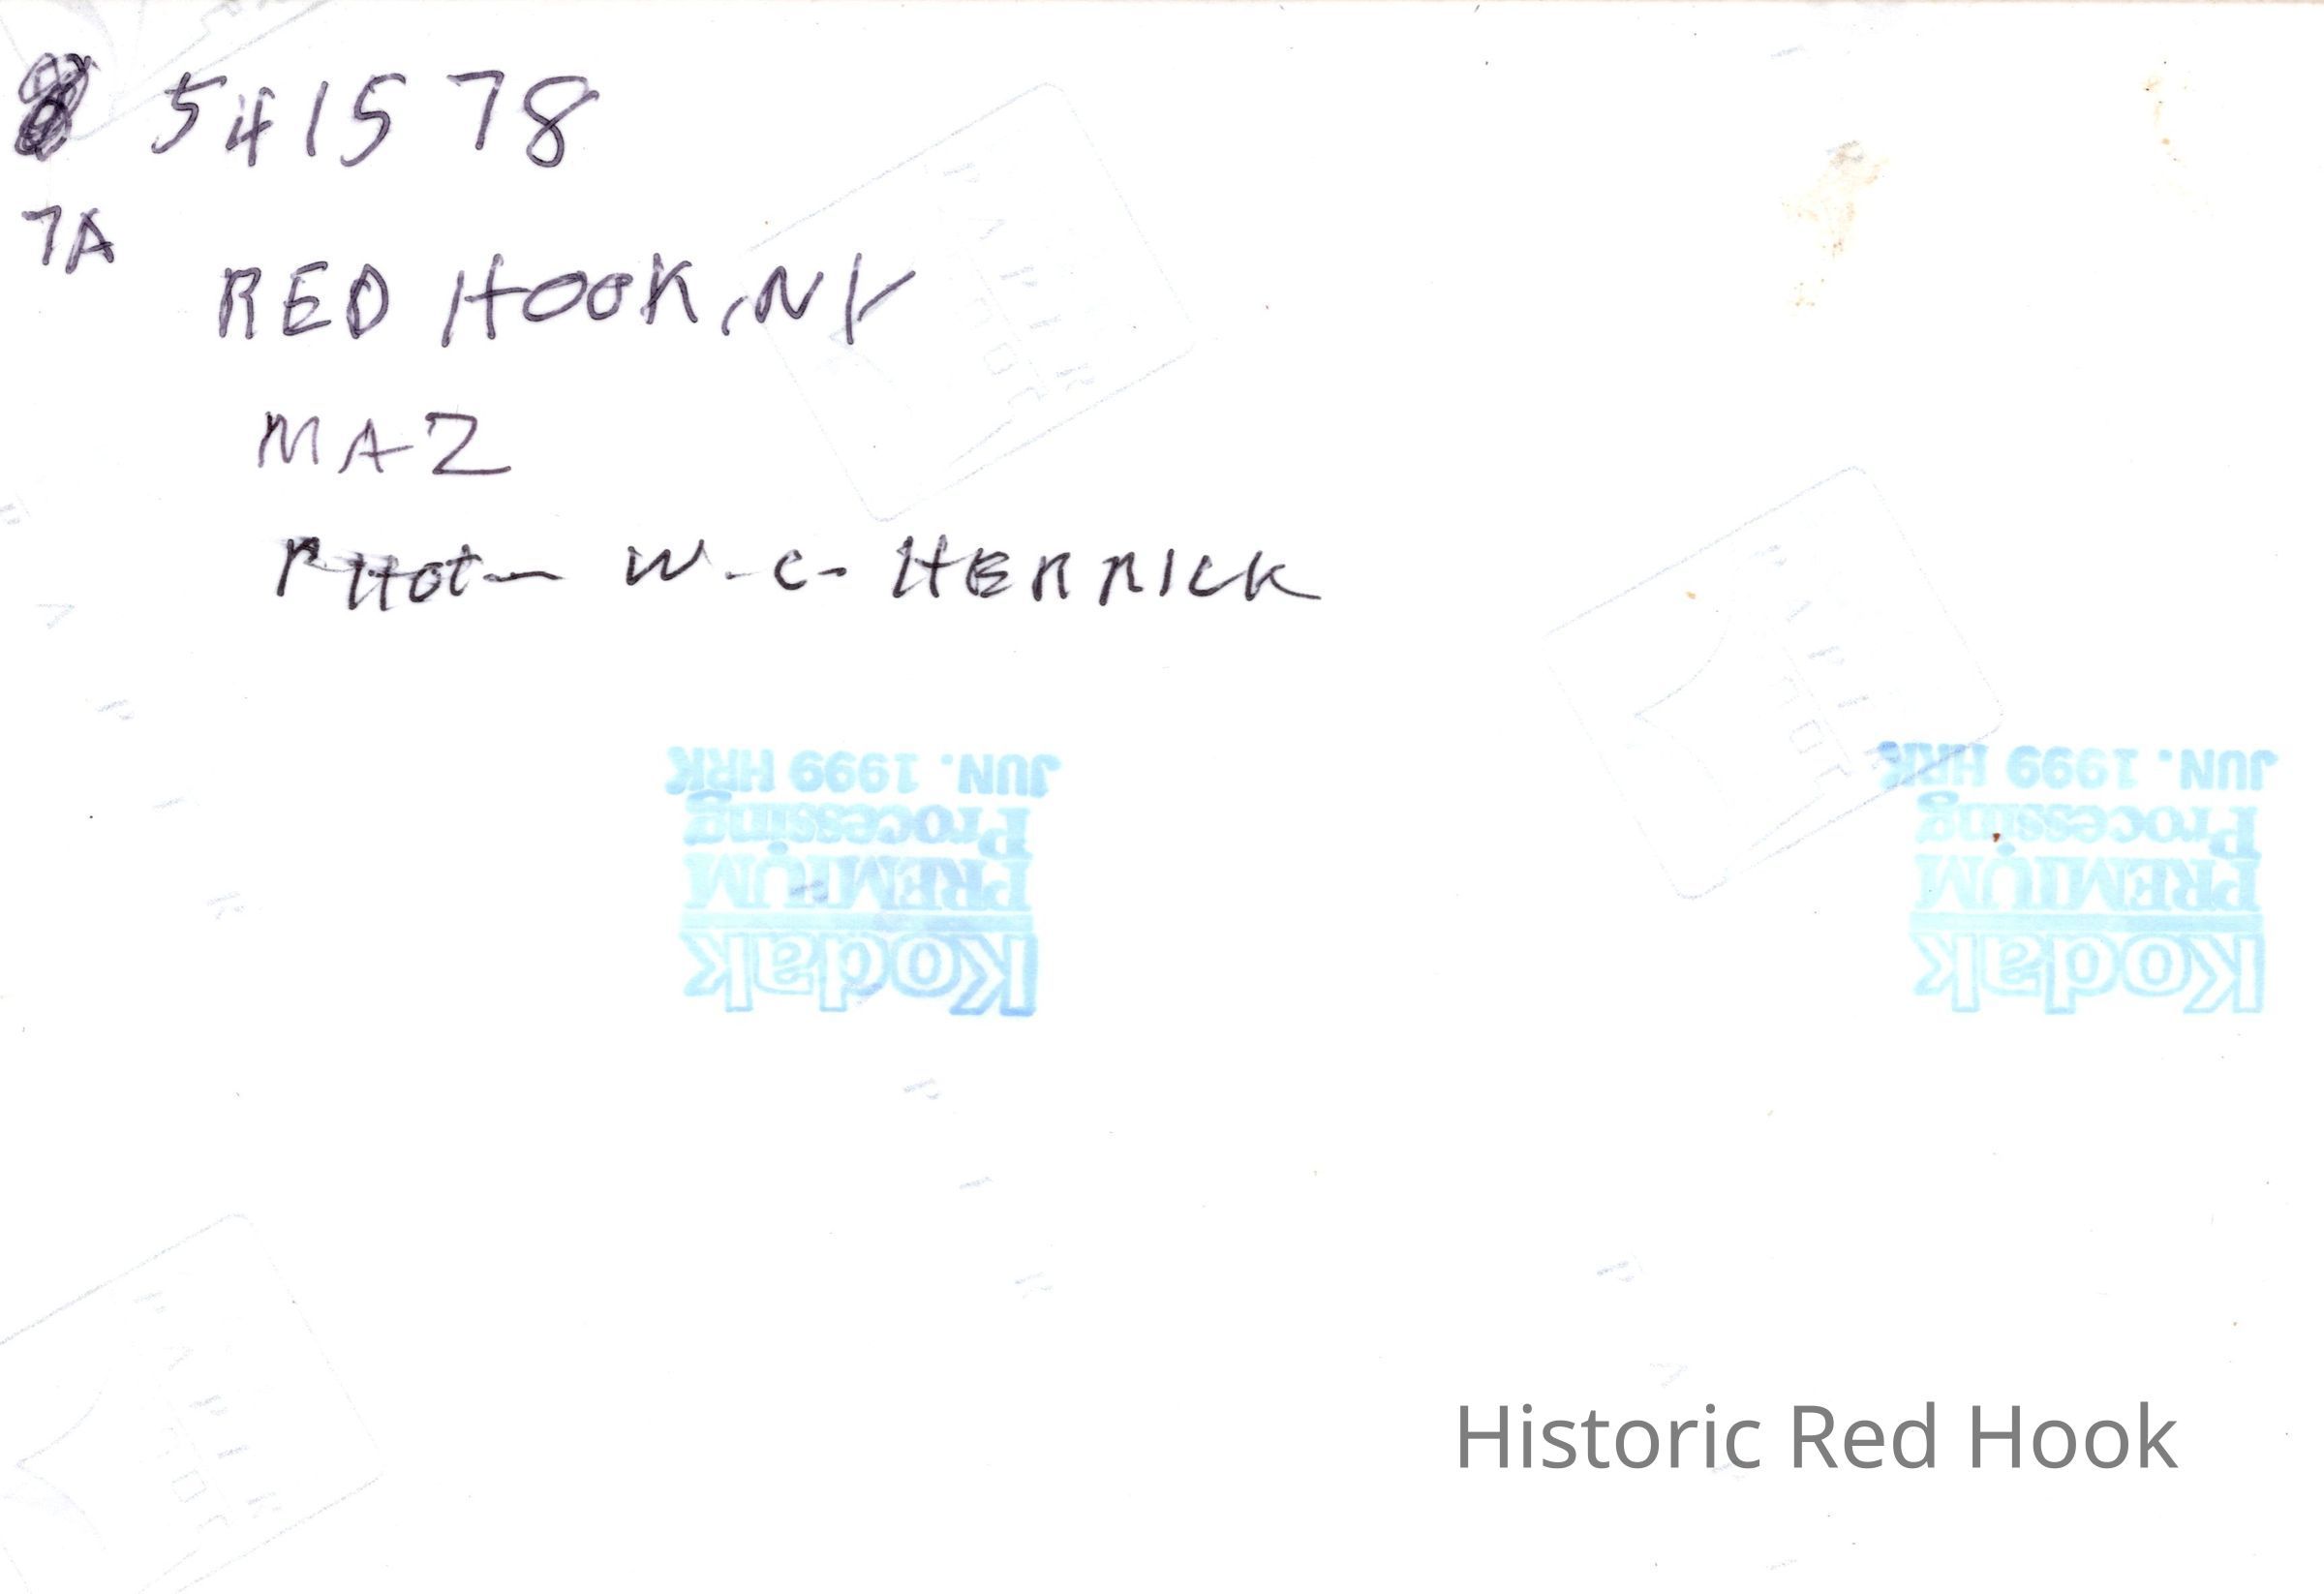 541578
7A
RED HOOK, NY
MAZ
PHOT— W-C- HERRICK
JUN. 1999 HRK
Processing
PREMIUM
Kodak
JUN. 1999 HRK
Processing
PREMIUM
Kodak
Historic Red Hook